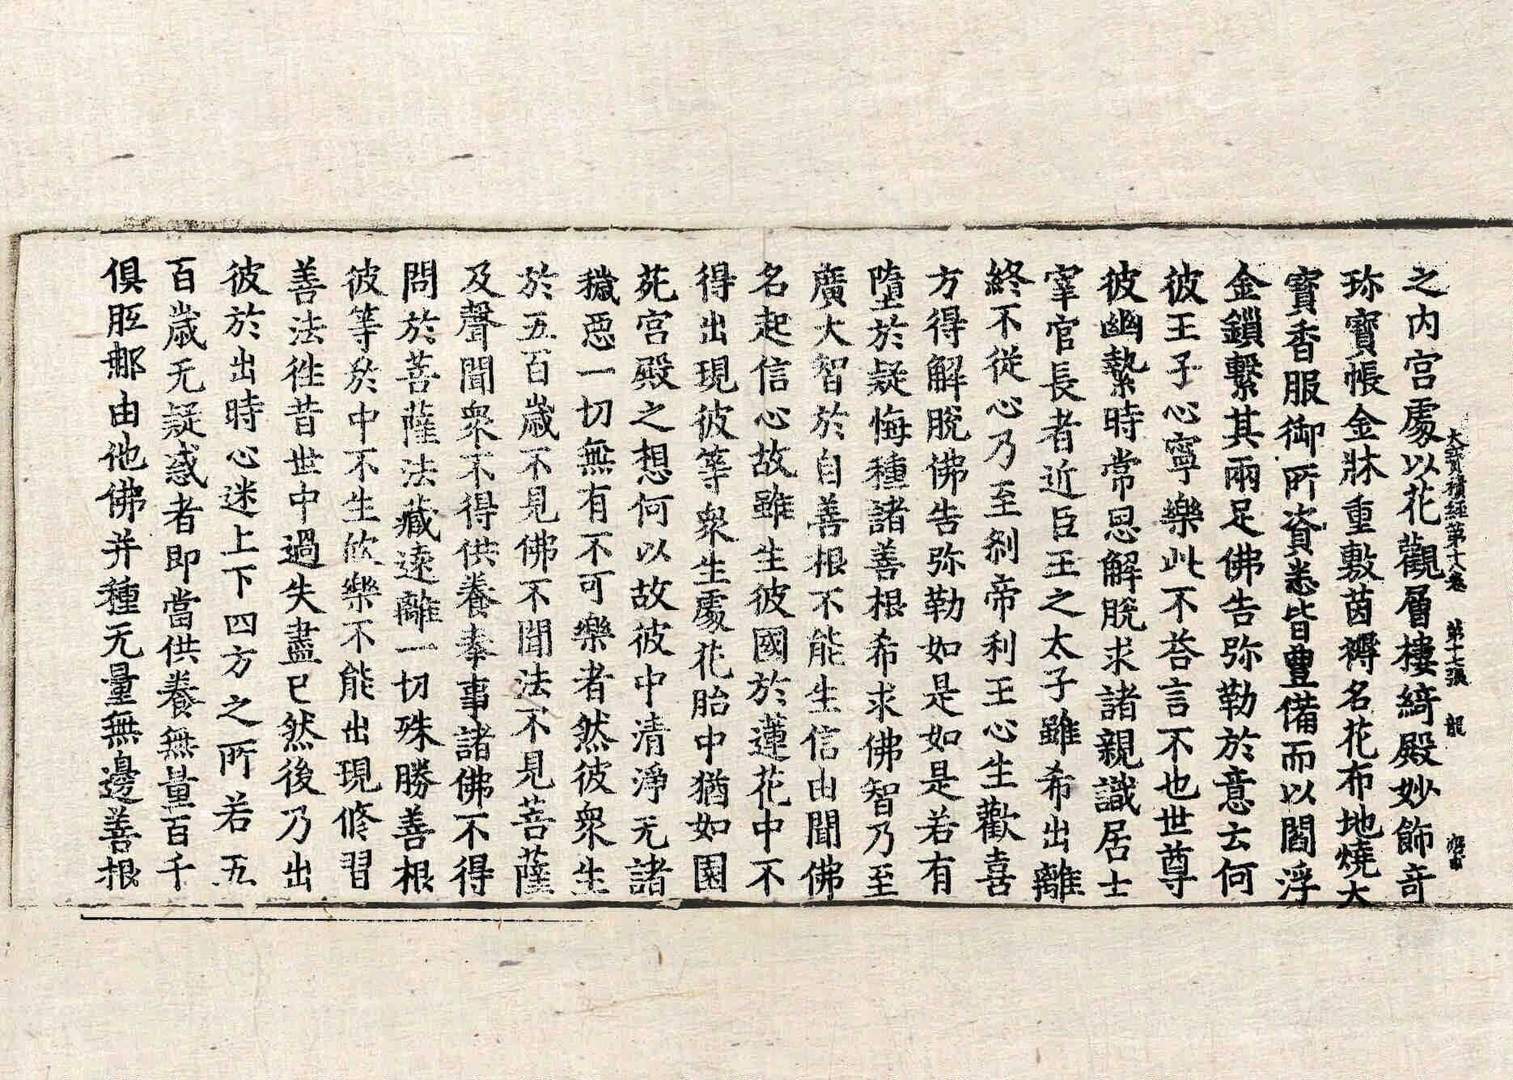 大寶積經第十八卷 第十七張 龍
之内宫處以花觀層樓綺殿妙飾竒
珎寶帳金牀重敷茵褥名花布地燒大
寶香服御所資悉皆豊備而以閻浮
金鎖繫其兩足佛告弥勒於意云何
彼王子心寧樂此不荅言不也世尊
彼幽縶時常思解脫求諸親識居士
宰官長者近臣王之太子雖希出離
終不從心乃至剎帝利王心生歡喜
方得解脫佛告弥勒如是如是若有
墮於疑悔種諸善根希求佛智乃至
廣大智於自善根不能生信由聞佛
名起信心故雖生彼國於蓮花中不
得出現彼等衆生處花胎中猶如園
苑宫殿之想何以故彼中清淨无諸
穢惡一切無有不可樂者然彼衆生
於五百歲不見佛不聞法不見菩薩
及聲聞衆不得供養奉事諸佛不得
問於菩薩法藏遠離一切殊勝善根
彼等於中不生欣樂不能出現修習
善法徃昔世中過失盡已然後乃出
彼於出時心迷上下四方之所若五
百歲无疑惑者即當供養無量百千
俱胝那由他佛并種无量無邊善根